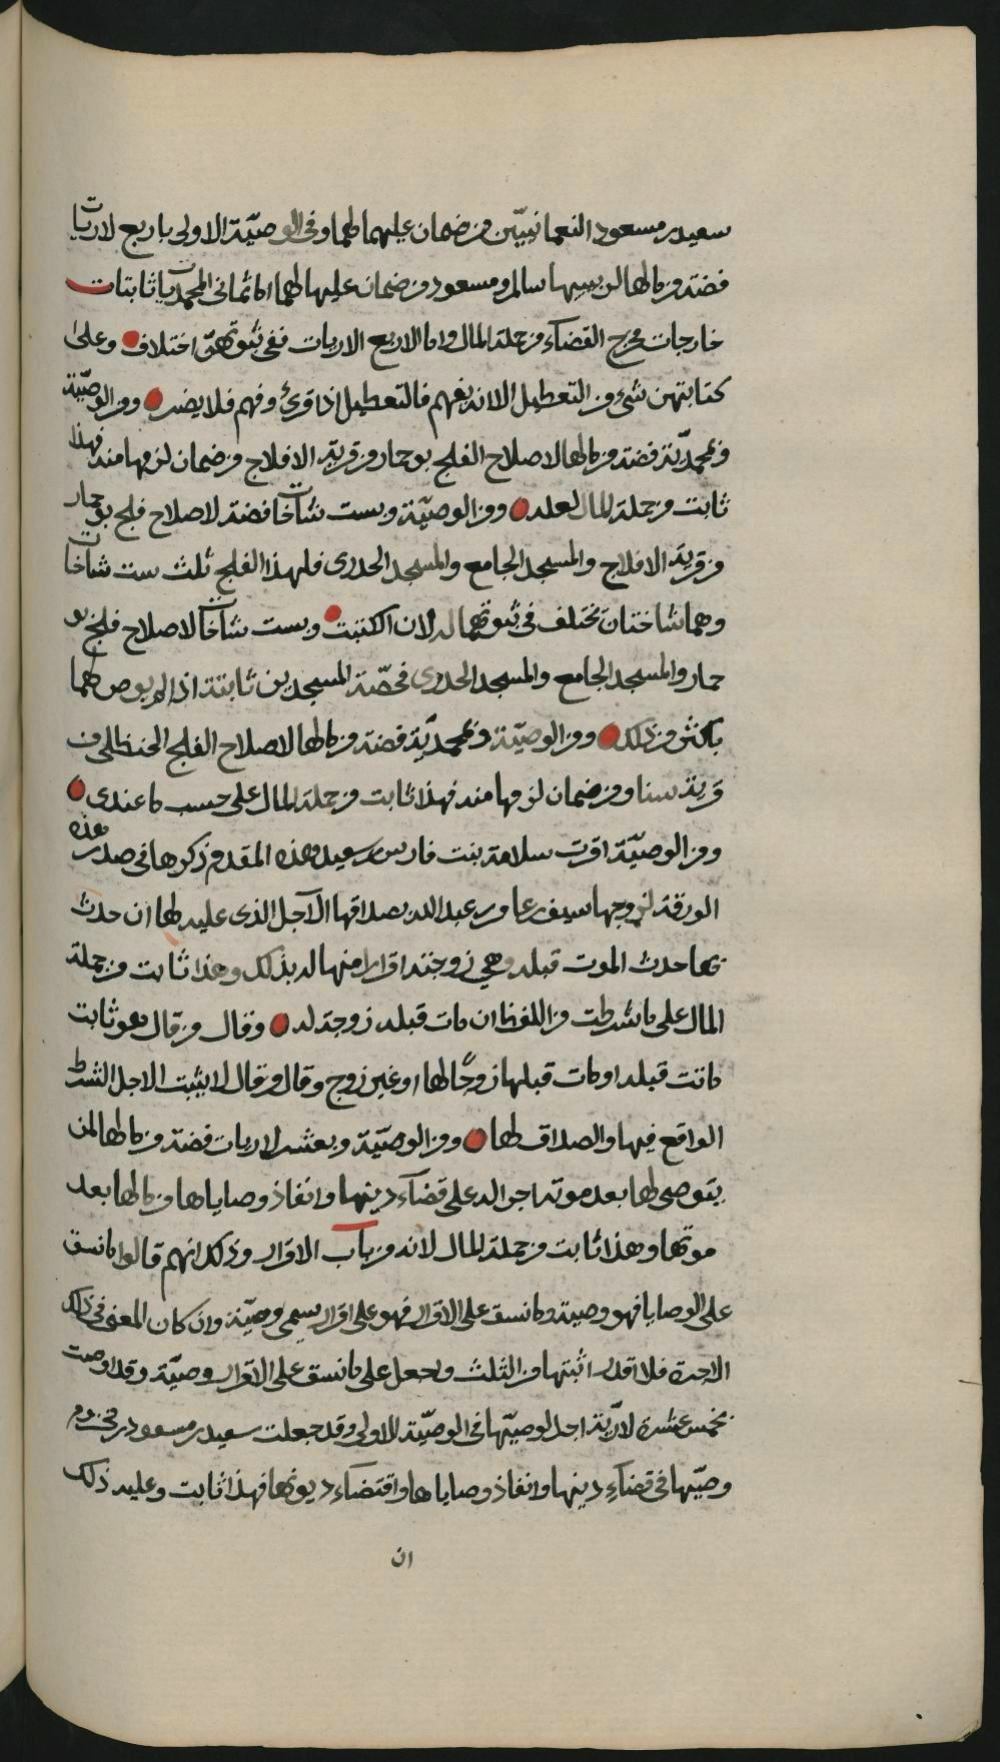 سعيد بن مسعود النعمانيين من ضمان عليهما لهما وفى الوصيّة الاولى باربع لاريات
فضة من مالها لربيبيها سالم ومسعود من ضمان عليها لهما اما ثمانى المحمديات ثابتات
خارجات مخرج القضاء من جملة المال واما الاربع الاريات ففى ثبوتهنّ اختلاف وعلى
كتابتهن شىء من التعطيل الا انه يفهم فالتعطيل اذا قرئ وفهم فلا يضر ومن الوصيّة
ومحمديّة فضة من مالها لاصلاح الفلج بو حمار من قرية الافلاج من ضمان لزمها منه فهذا
ثابت من جملة المال لعله ومن الوصيّة وبست شاخات فضة لاصلاح فلج بو حمار
من قرية الافلاج والمسجد الجامع والمسجد الحدرى فلهذا الفلج ثلث ست شاخات
وهما شاختان يختلف فى ثبوتهما له لان الكتبت وبست شاخات لاصلاح فلج بو
حمار والمسجد الجامع والمسجد الحدرى فحصّة المسجدين ثابتة اذا لم يوص لهما
باكثر من ذلك ومن الوصيّة ومحمديّة فضة من مالها لاصلاح الفلج الحنظلى من
قرية سنا ومن ضمان لزمها منه فهذا ثابت من جملة المال على حسب ما عندى
ومن الوصيّة اقرت سلامة بنت فارس بن سعيد وهذه المقدم ذكرها فى صدر هذه
الورقة لزوجها سيف بن عامر بن عبدالله بصداقها الآجل الذى عليه لها ان حدث
بها حدث الموت قبله وهي زوجته اقرارا منها له بذلك وهذا ثابت من جملة
المال على ما شرطت من اللفظ ان ماتت قبله زوجة له وقال من قال هو ثابت
ماتت قبله او مات قبلها زوجًا لها او غير زوج وقال من قال لا يثبت الاجل الشرط
الواقع فيها والصداق لها ومن الوصيّة وبعشر لاريات فضة من مالها لمن
يتوصى لها بعد موته اجرا له على قضاء دينها وانفاذ وصاياها من مالها بعد
موتها وهذا ثابت من جملة المال لانه من باب الاقرار وذلك انهم قالوا ما نسق
على الوصايا فهو وصية وما نسق على الاقرار فهو على اقرار يسمى وصيّة وان كان المعنى فى ذلك
الاجرة فلا اقدر اثبتها من الثلث وجعل على ما نسق على الاقرار وصيّة وقد اوصت
بخمس عشرة لاريّة اجر لوصيّها فى الوصيّة الاولى وقد جعلت سعيد بن مسعود بن
وصيّها فى قضاء دينها وانفاذ وصاياها واقتضاء ديونها فهذا ثابت وعليه ذلك
ان